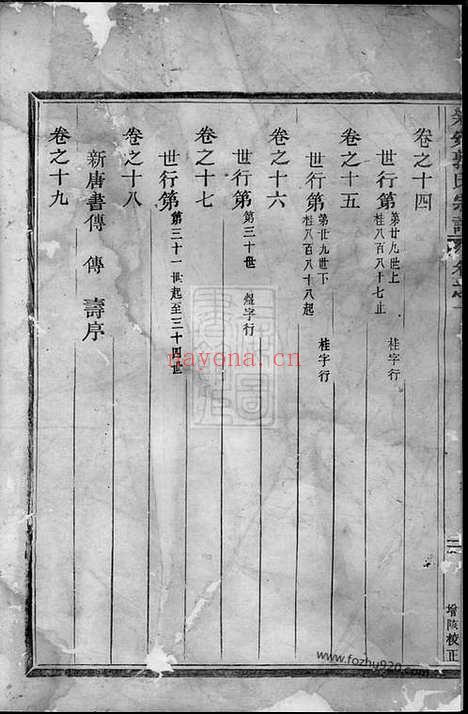 卷之十四
世行第 第廿九世上 桂八百八十七止 桂字行
卷之十五
世行第 第廿九世下 桂八百八十八起 桂字行
卷之十六
世行第 第三十世 煜字行
卷之十七
世行第 第三十一世起至三十四世
卷之十八
新唐書傳 傳 壽序
卷之十九
二
增陔校正
nayona.cn
www.fozhy920.com